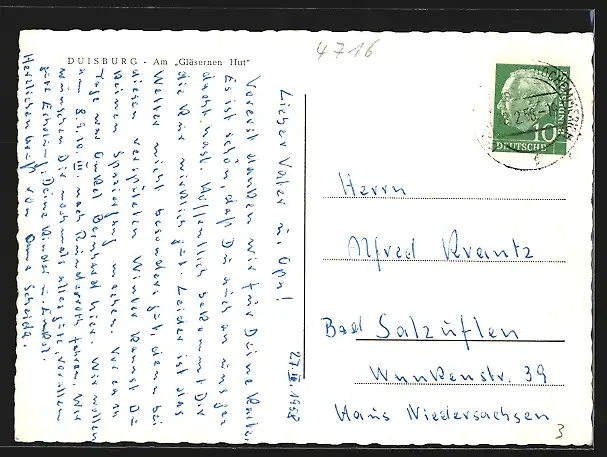 4716
DUISBURG - Am „Gläsernen Hut"
Lieber Vater u. Opa!
27. II. 1958
Vorerst danken wir für Deine Karte.
Es ist schön, daß Du auch an uns ge-
dacht hast. Hoffentlich bekommt Dir
die Kur wirklich gut. Leider ist das
Wetter nicht besonders gut, denn bei
diesem verspäteten Winter kannst Du
keinen Spaziergang machen. Vor ein
Tage war Onkel Bernhard hier. Wir wollen
am 8. 9. 10. III. nach Ründeroth fahren. Wir
wünschen Dir nochmals alles gute, vor allem
gute Erholung, Deine Kinder u. Enkel.
Herzlichen Gruß von Oma Scheida.
10
DEUTSCHE
BUNDESPOST
Herrn
Alfred Krantz
Bad Salzuflen
Wenkenstr. 39
Haus Niedersachsen
3